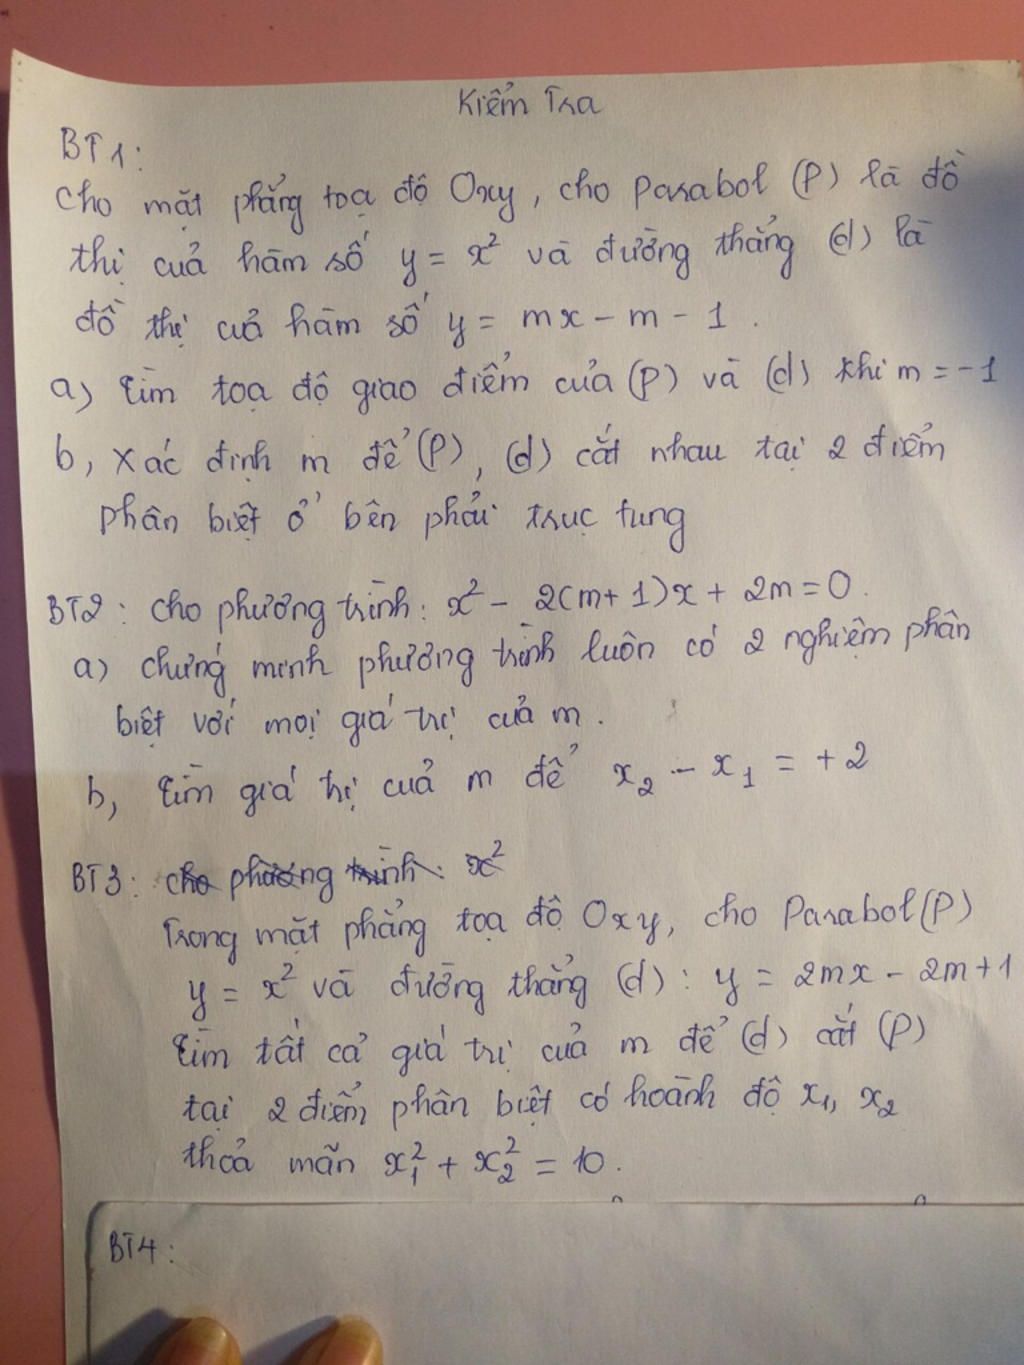 Kiểm Tra
BT1:
Cho mặt phẳng toạ độ Oxy, cho parabol (P) là đồ
thị của hàm số y = x² và đường thẳng (d) là
đồ thị của hàm số y = mx - m - 1.
a) tìm toạ độ giao điểm của (P) và (d) khi m = -1
b, Xác định m để (P), (d) cắt nhau tại 2 điểm
phân biệt ở bên phải trục tung
BT2: cho phương trình: x² - 2(m+1)x + 2m = 0.
a) chứng minh phương trình luôn có 2 nghiệm phân
biệt với mọi giá trị của m.
b, tìm giá trị của m để x₂ - x₁ = +2
BT3: cho phương trình: x²
Trong mặt phẳng toạ độ Oxy, cho Parabol (P)
y = x² và đường thẳng (d): y = 2mx - 2m + 1
tìm tất cả giá trị của m để (d) cắt (P)
tại 2 điểm phân biệt có hoành độ x₁, x₂
thoả mãn x₁² + x₂² = 10.
BT4: